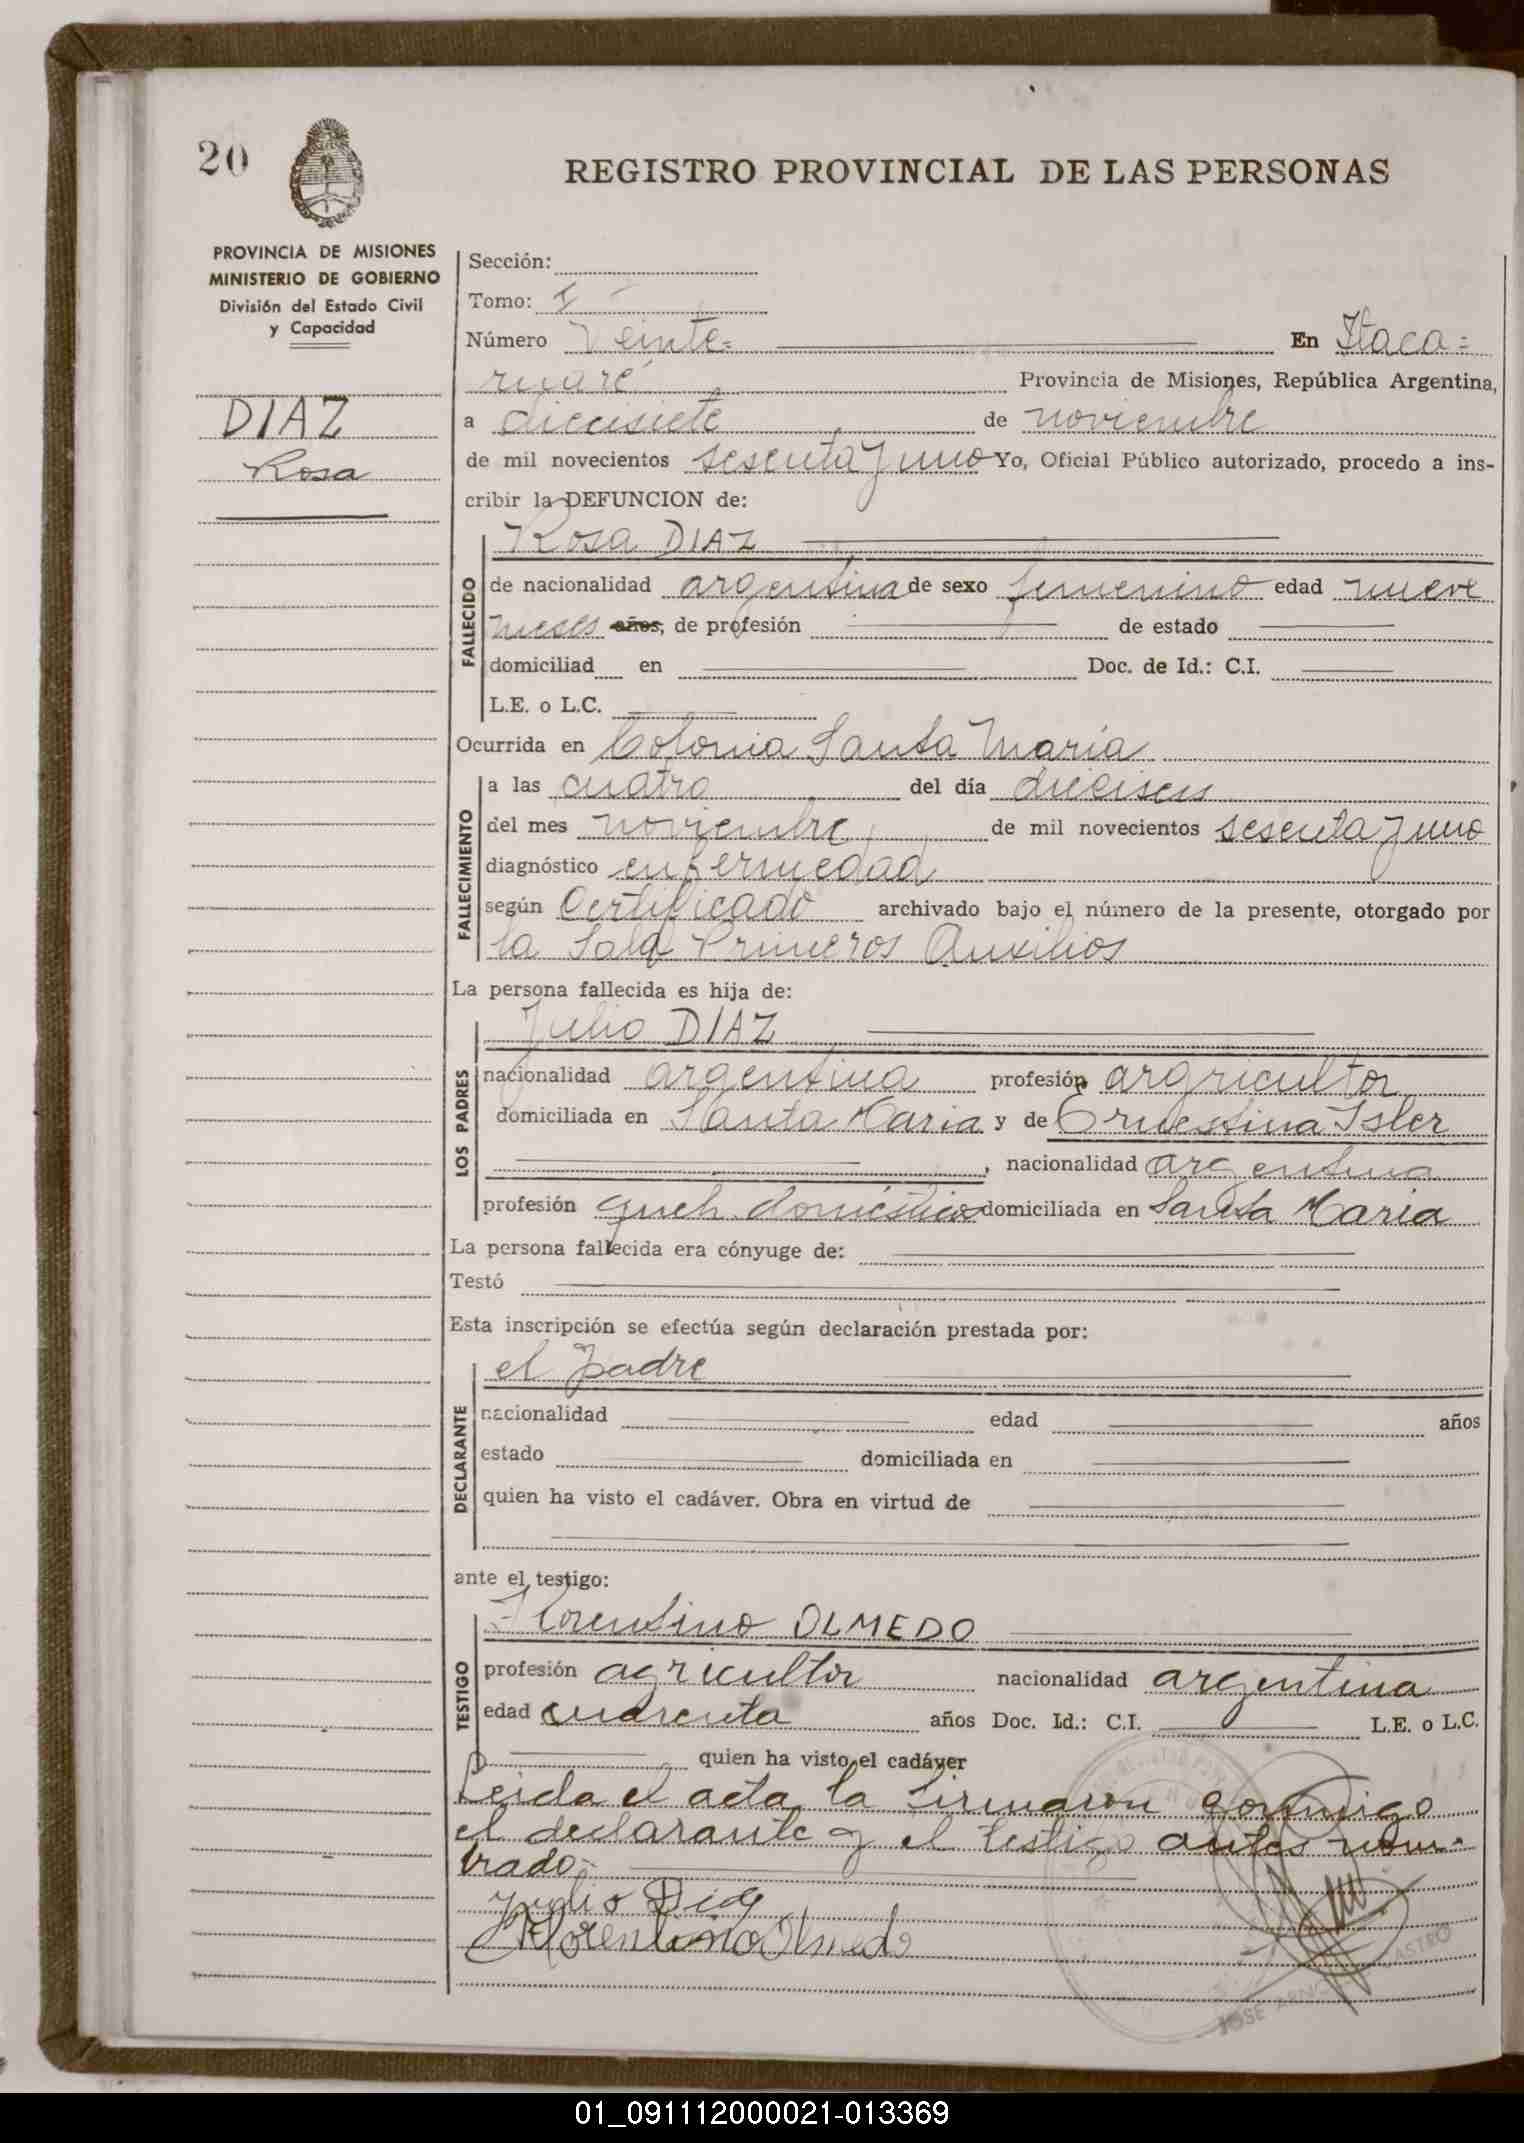 20
REGISTRO PROVINCIAL DE LAS PERSONAS
PROVINCIA DE MISIONES
MINISTERIO DE GOBIERNO
División del Estado Civil
y Capacidad
DIAZ
Rosa
Sección:
Tomo: I
Número Veinte= En Itaca=
ruaré Provincia de Misiones, República Argentina,
a diecisiete de noviembre
de mil novecientos sesenta y uno Yo, Oficial Público autorizado, procedo a ins-
cribir la DEFUNCION de:
Rosa DIAZ
FALLECIDO
de nacionalidad argentina de sexo femenino edad nueve
meses años, de profesión de estado
domiciliad en Doc. de Id.: C.I.
L.E. o L.C.
Ocurrida en Colonia Santa María
FALLECIMIENTO
a las cuatro del día dieciseis
del mes noviembre de mil novecientos sesenta y uno
diagnóstico enfermedad
según Certificado archivado bajo el número de la presente, otorgado por
la Sala Primeros Auxilios
La persona fallecida es hija de:
LOS PADRES
Julio DIAZ
nacionalidad argentina profesión argricultor
domiciliada en Santa Maria y de Ernestina Isler
, nacionalidad argentina
profesión queh. domésticos domiciliada en Santa Maria
La persona fallecida era cónyuge de:
Testó
Esta inscripción se efectúa según declaración prestada por:
DECLARANTE
el padre
nacionalidad edad años
estado domiciliada en
quien ha visto el cadáver. Obra en virtud de
ante el testigo:
TESTIGO
Florentino OLMEDO
profesión agricultor nacionalidad argentina
edad cuarenta años Doc. Id.: C.I. L.E. o L.C.
quien ha visto el cadáver
Leida el acta la firmaron conmigo
el declarante y el testigo antes nom-
brado.-
Julio Diaz
Florentino Olmedo
JOSE CASTRO
01_091112000021-013369